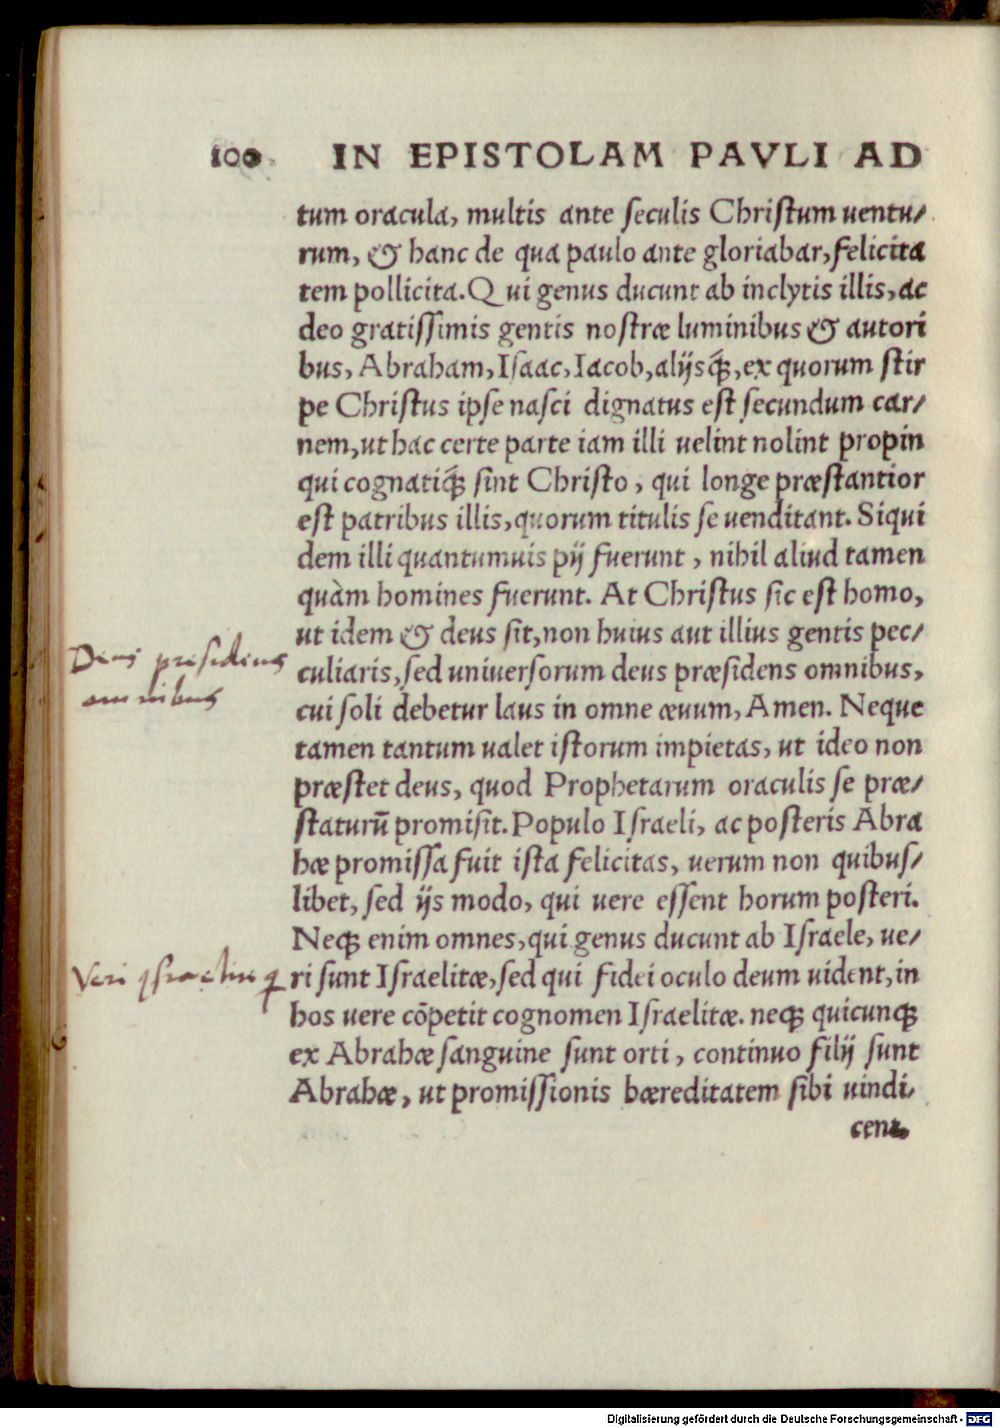 100 IN EPISTOLAM PAVLI AD
tum oracula, multis ante ſeculis Chriſtum uentu/
rum, & hanc de qua paulo ante gloriabar, felicita
tem pollicita. Qui genus ducunt ab inclytis illis, ac
deo gratiſſimis gentis noſtræ luminibus & autori
bus, Abraham, Iſaac, Iacob, alijsq́;, ex quorum ſtir
pe Chriſtus ipſe naſci dignatus eſt ſecundum car/
nem, ut hac certe parte iam illi uelint nolint propin
qui cognatiq́; ſint Chriſto, qui longe præſtantior
eſt patribus illis, quorum titulis ſe uenditant. Siqui
dem illi quantumuis pij fuerunt, nihil aliud tamen
quàm homines fuerunt. At Chriſtus ſic eſt homo,
ut idem & deus ſit, non huius aut illius gentis pec/
culiaris, ſed uniuerſorum deus præſidens omnibus,
cui ſoli debetur laus in omne æuum, Amen. Neque
tamen tantum ualet iſtorum impietas, ut ideo non
præſtet deus, quod Prophetarum oraculis ſe præ/
ſtaturū promiſit. Populo Iſraeli, ac poſteris Abra
hæ promiſſa fuit iſta felicitas, uerum non quibuſ/
libet, ſed ijs modo, qui uere eſſent horum poſteri.
Neq; enim omnes, qui genus ducunt ab Iſraele, ue/
ri ſunt Iſraelitæ, ſed qui fidei oculo deum uident, in
hos uere cōpetit cognomen Iſraelitæ. neq; quicunq;
ex Abrahæ ſanguine ſunt orti, continuo filij ſunt
Abrahæ, ut promiſſionis hæreditatem ſibi uindi/
cent.
Deus presidens
omnibus
Veri
Digitalisierung gefördert durch die Deutsche Forschungsgemeinschaft - DFG